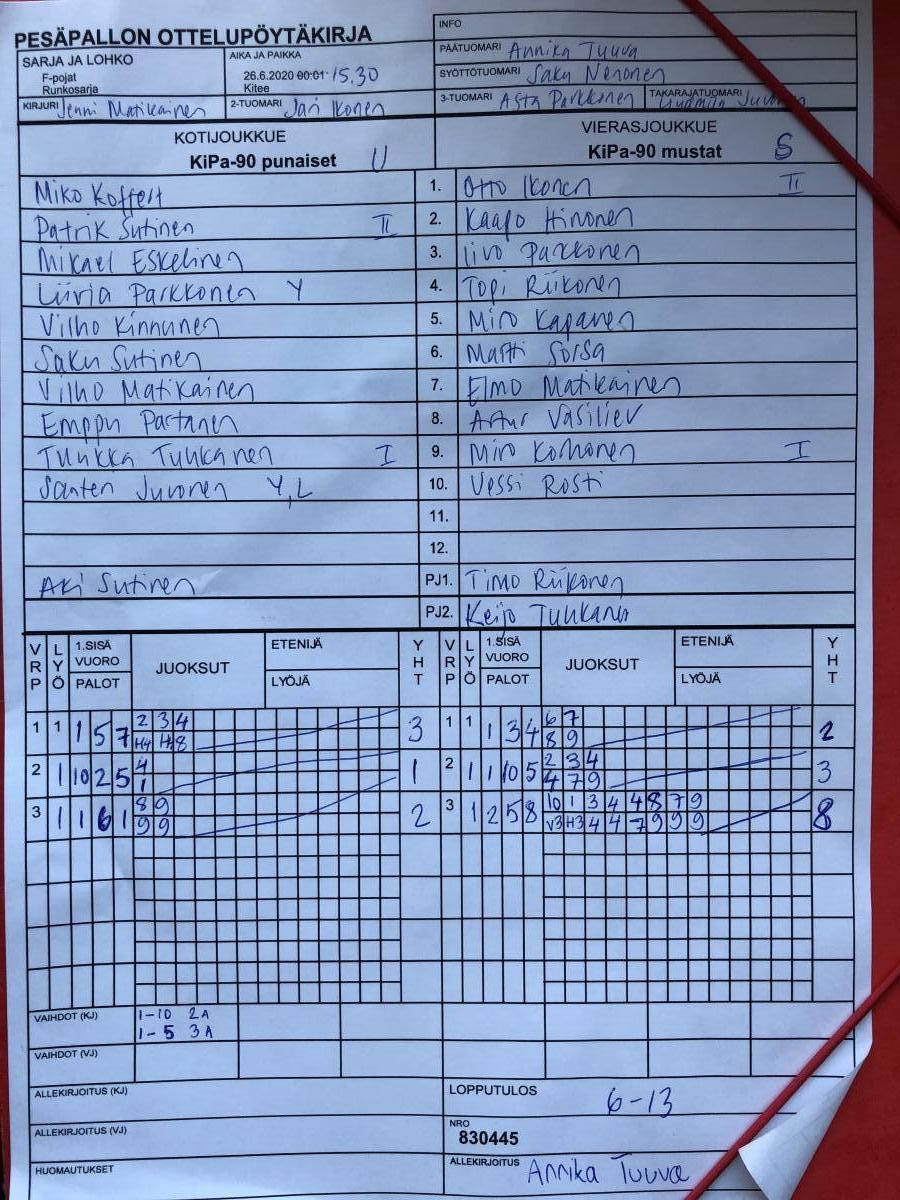 PESÄPALLON OTTELUPÖYTÄKIRJA
INFO
SARJA JA LOHKO
F-pojat
Runkosarja
AIKA JA PAIKKA
26.6.2020 00:01 15.30
Kitee
PÄÄTUOMARI Annika Tuuva
SYÖTTÖTUOMARI Saku Nenonen
KIRJURI Jenni Matikainen
2-TUOMARI Jari Ikonen
3-TUOMARI Asta Parkkonen
TAKARAJATUOMARI
KOTIJOUKKUE
KiPa-90 punaiset U
VIERASJOUKKUE
KiPa-90 mustat S
Miko Koffert 1. Otto Ikonen II
Patrik Sutinen II 2. Kaapo Hirvonen
Mikael Eskelinen 3. Iivo Parkkonen
Liivia Parkkonen Y 4. Topi Riikonen
Vilho Kinnunen 5. Miro Kapanen
Saku Sutinen 6. Martti Sorsa
Vilho Matikainen 7. Elmo Matikainen
Emppu Partanen 8. Artur Vasiliev
Tuukka Tuukanen I 9. Miro Korhonen I
Santeri Juvonen Y,L 10. Vessi Rosti
11.
12.
Aki Sutinen PJ1. Timo Riikonen
PJ2. Keijo Tuukanen
VRP LYÖ 1.SISÄ VUORO PALOT JUOKSUT ETENIJÄ LYÖJÄ YHT VRP LYÖ 1.SISÄ VUORO PALOT JUOKSUT ETENIJÄ LYÖJÄ YHT
1 1 1 5 7 2 3 4 3 1 1 1 3 4 6 7 2
H4 4 8 8 9
2 1 10 2 5 4 1 2 1 1 10 5 2 3 4 3
1 4 7 9
3 1 1 6 1 8 9 2 3 1 2 5 8 10 1 3 4 4 8 7 9 8
9 9 V3 H3 4 4 7 9 9 9
VAIHDOT (KJ) 1-10 2A
1-5 3A
VAIHDOT (VJ)
ALLEKIRJOITUS (KJ)
LOPPUTULOS 6-13
ALLEKIRJOITUS (VJ)
NRO
830445
HUOMAUTUKSET
ALLEKIRJOITUS Annika Tuuva